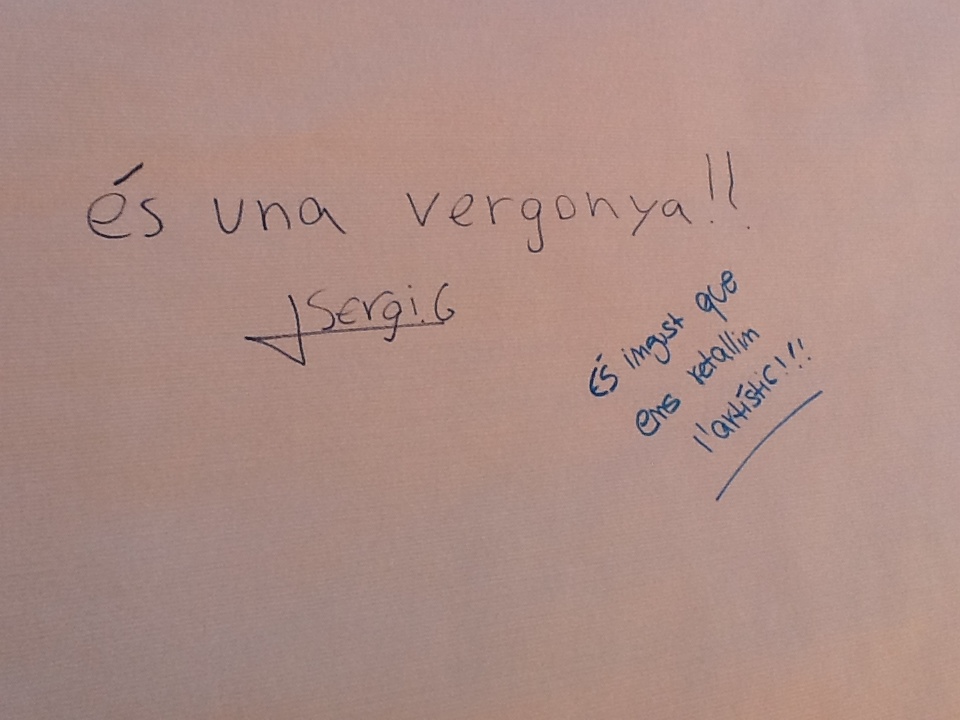 és una vergonya!!
Sergi.G
És imgust que
ens retallin
l'artístic!!!